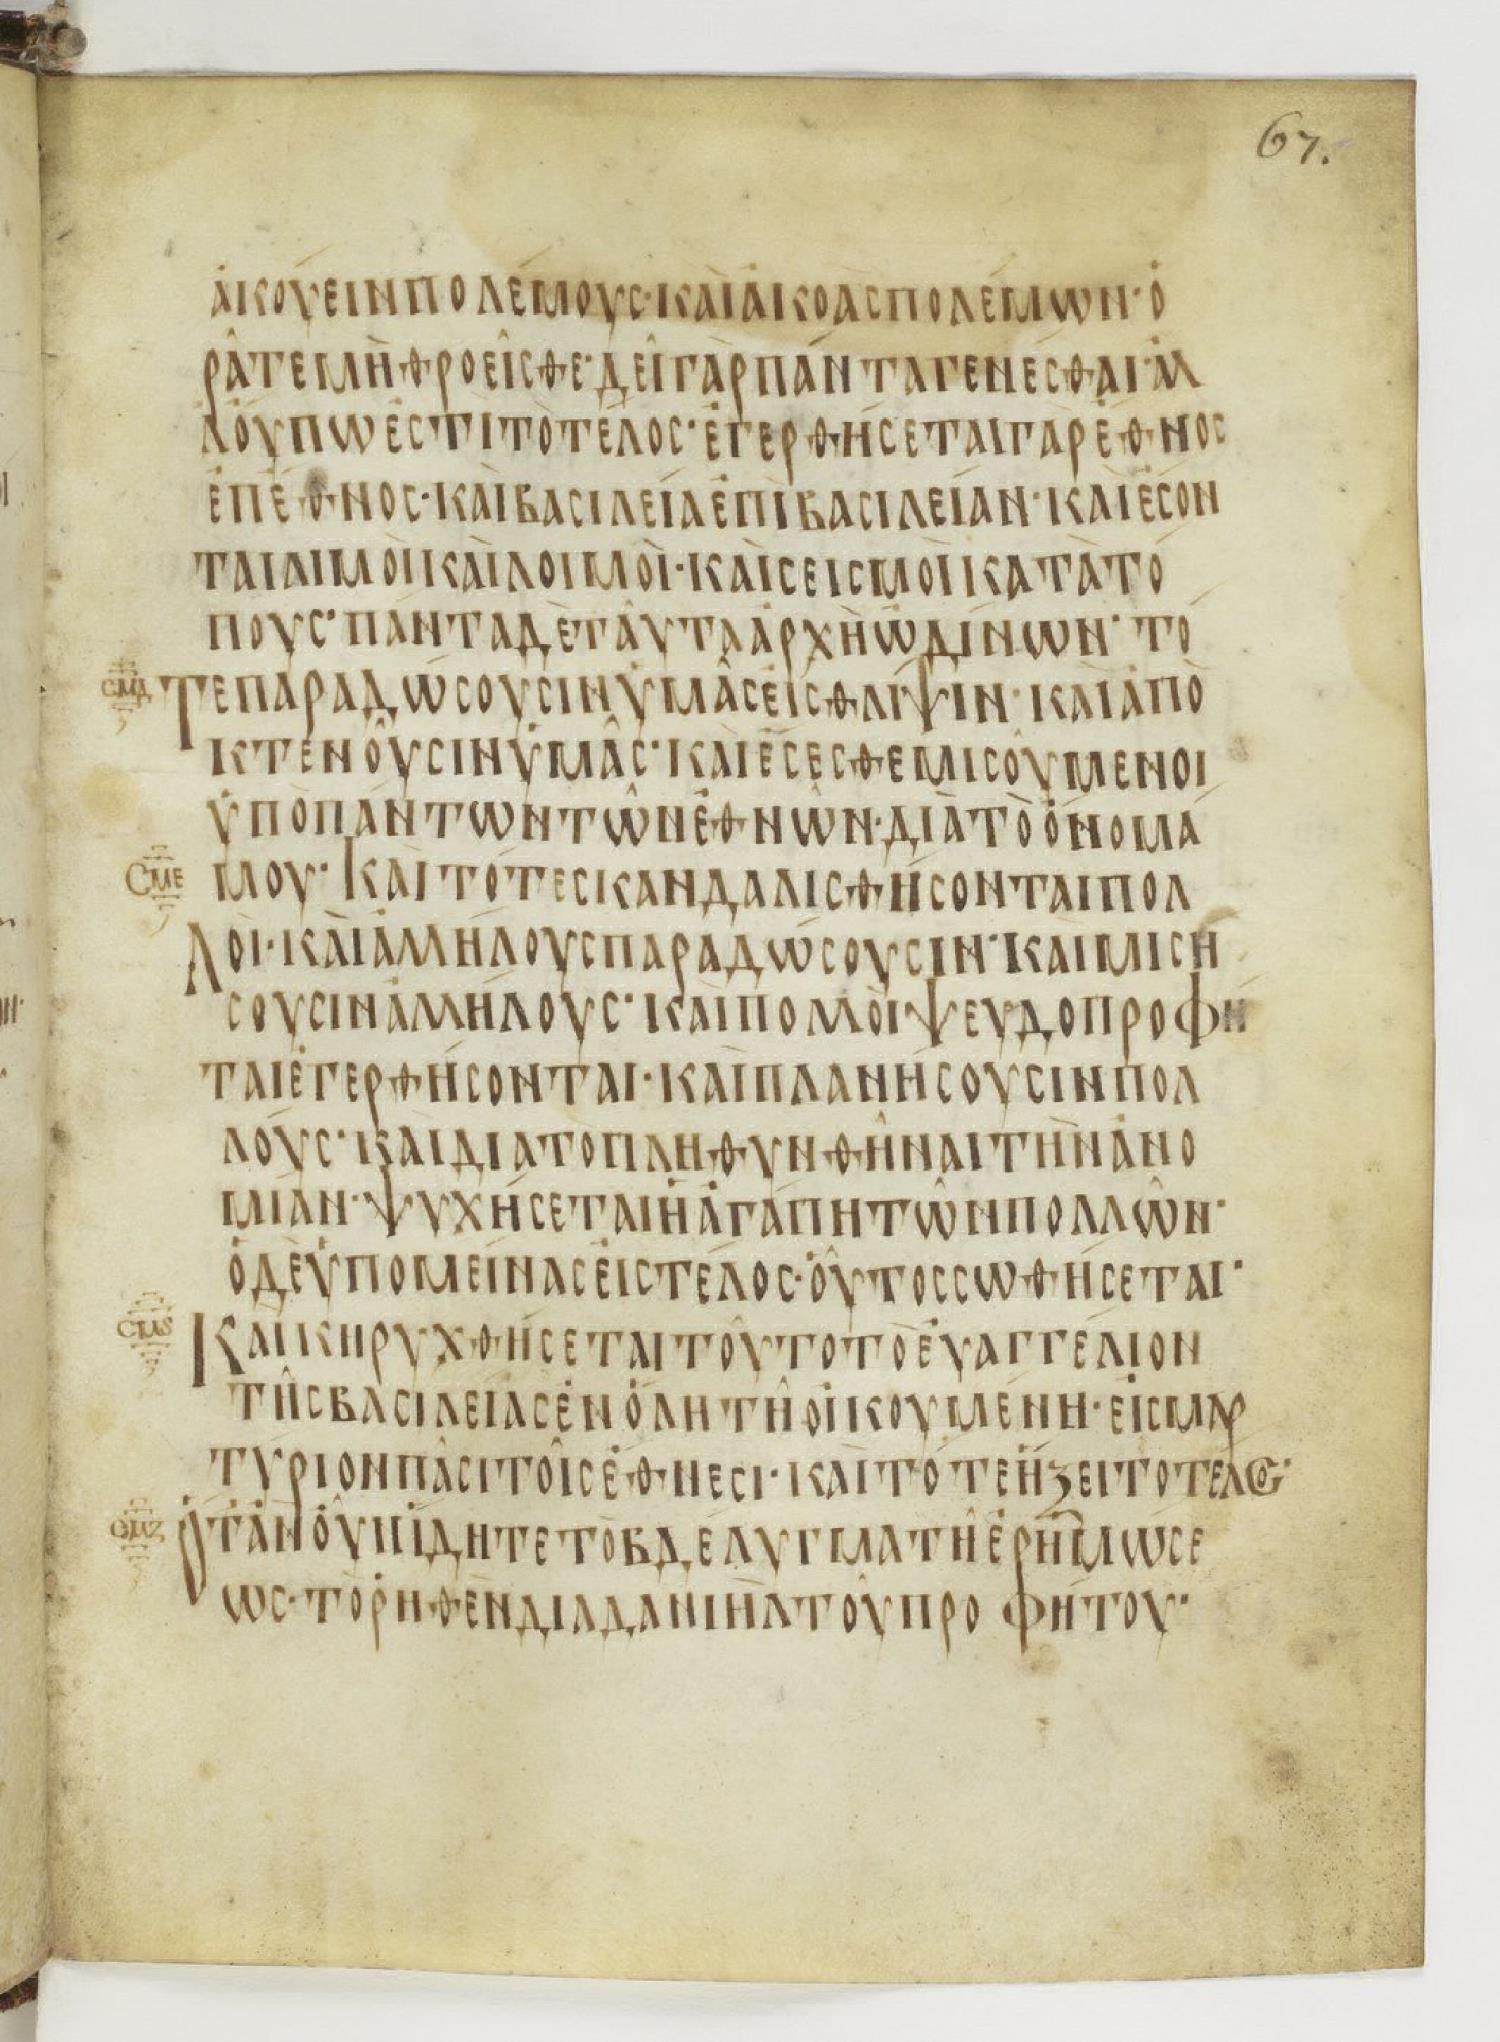 67.
ἀκούειν πολέμους· καὶ ἀκοὰς πολέμων· ὁ
ρᾶτε μὴ θροεῖσθε· δεῖ γὰρ πάντα γενέσθαι· ἀλ
λ' οὔπω ἐστὶ τὸ τέλος· ἐγερθήσεται γὰρ ἔθνος
ἐπ' ἔθνος· καὶ βασιλεία ἐπὶ βασιλείαν· καὶ ἔσον
ται λιμοὶ καὶ λοιμοὶ· καὶ σεισμοὶ κατὰ τό
πους· πάντα δὲ ταῦτα ἀρχὴ ὠδίνων· τό
σμδ Τε παραδώσουσιν ὑμᾶς εἰς θλίψιν· καὶ ἀπο
κτενοῦσιν ὑμᾶς· καὶ ἔσεσθε μισούμενοι
ὑπὸ πάντων τῶν ἐθνῶν· διὰ τὸ ὄνομά
σμε μου· Καὶ τότε σκανδαλισθήσονται πολ
Λοὶ· καὶ ἀλλήλους παραδώσουσιν· καὶ μισή
σουσιν ἀλλήλους· καὶ πολλοὶ ψευδοπροφῆ
ται ἐγερθήσονται· καὶ πλανήσουσιν πολ
λούς· καὶ διὰ τὸ πληθυνθῆναι τὴν ἀνο
μίαν· ψυχήσεται ἡ ἀγάπη τῶν πολλῶν·
ὁ δὲ ὑπομείνας εἰς τέλος· οὗτος σωθήσεται·
σμς Καὶ κηρυχθήσεται τοῦτο τὸ εὐαγγέλιον
τῆς βασιλείας ἐν ὅλη τῆ οἰκουμένη· εἰς μαρ
τύριον πᾶσι τοῖς ἔθνεσι· καὶ τότε ἥξει τὸ τέλος·
σμζ Ὅταν οὖν ἴδητε τὸ βδέλυγμα τῆ ἐρημώσε
ως· τὸ ῥηθὲν διὰ δανιὴλ τοῦ προφήτου·